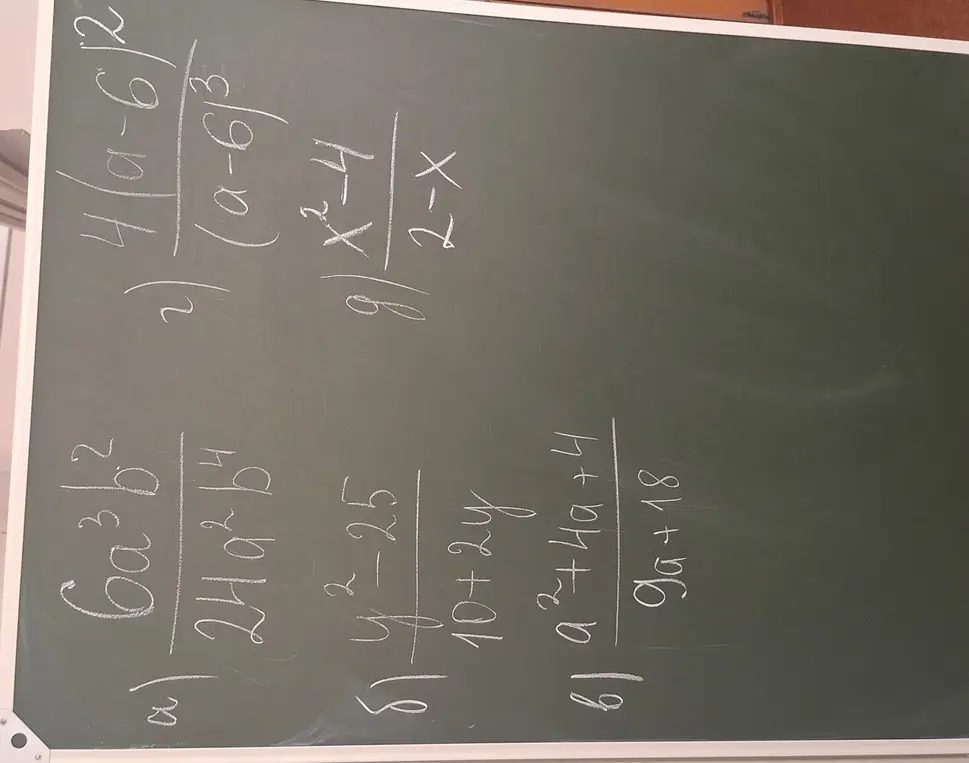 а) 6a³b² / 24a²b⁴
б) y² - 25 / 10 + 2y
в) a² + 4a + 4 / 9a + 18
г) 4(a - 6)² / (a - 6)³
д) x² - 4 / 2 - x